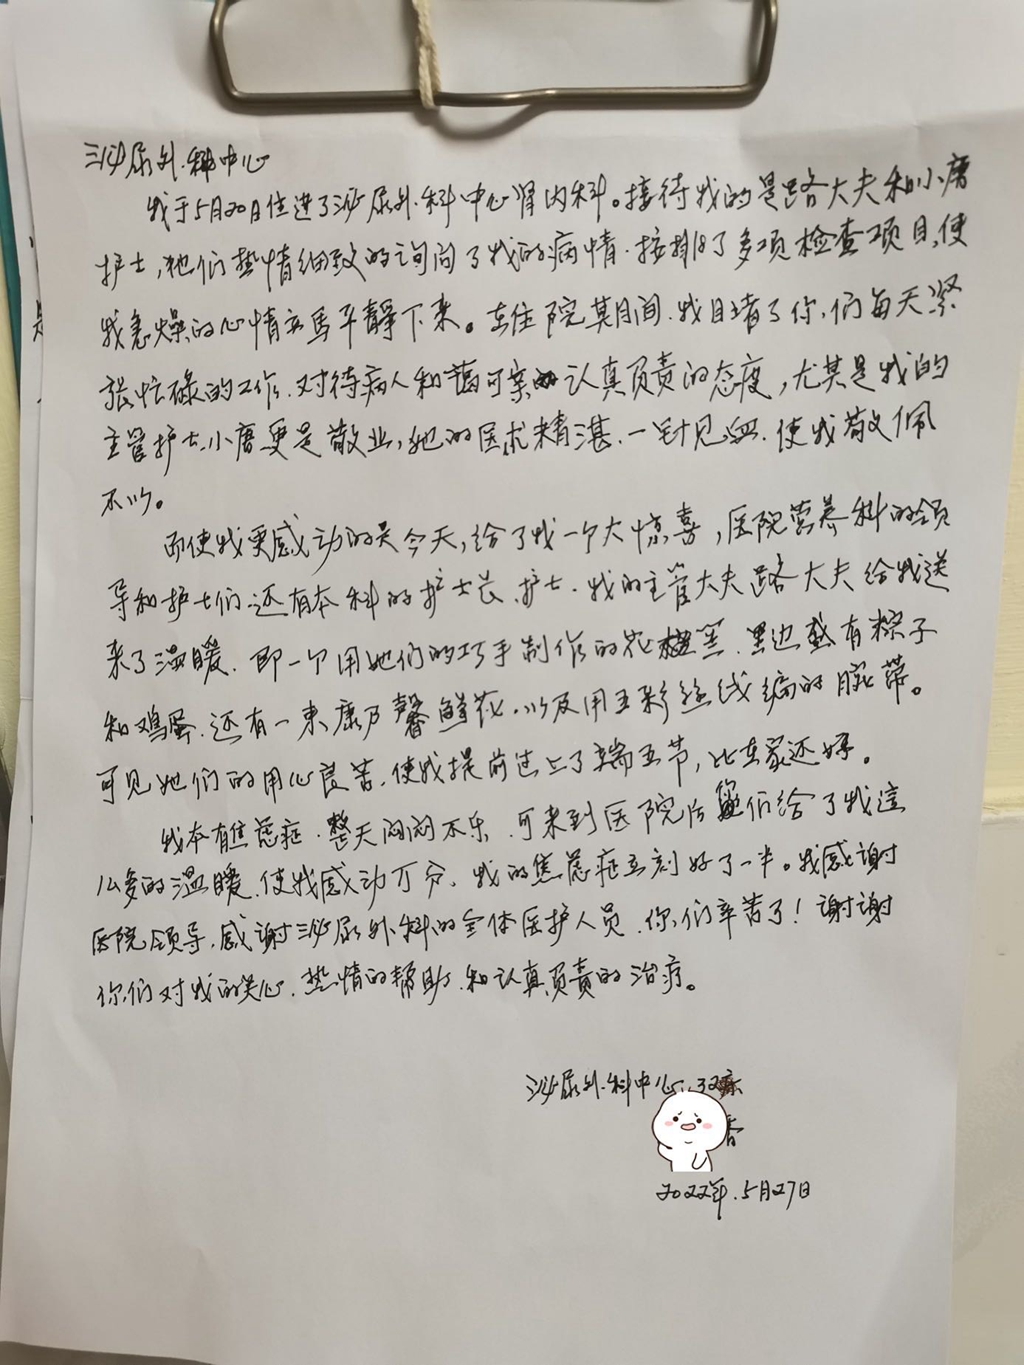 泌尿外.科中心
我于5月20日住进了泌尿外.科中心肾内科。接待我的是路大夫和小唐
护士,她们热情细致的询问了我的病情.接排了多项检查项目,使
我急燥的心情立马平静下来。在住院其月间.我目堵了你们每天紧
张忙碌的工作.对待病人和蔼可亲认真负责的态度,尤其是我的
主管护士小唐更是敬业,她的医术精湛.一针见血.使我敬佩
不以。
而使我更感动的是今天,给了我一个大惊喜,医院营养科的领
导和护士们.还有本科的护士长.护士.我的主管大夫路大夫给我送
来了温暖.即一个用她们的巧手制作的花.里边盛有粽子
和鸡蛋.还有一束康乃馨鲜花.以及用五彩丝线编的腕带。
可见她们的用心良苦.使我提前过上了端五节,比在家还好。
我本有焦虑症.整天闷闷不乐.可来到医院后您们给了我这
么多的温暖.使我感动万分.我的焦虑症立刻好了一半。我感谢
医院领导.感谢泌尿外科的全体医护人员.你们辛苦了!谢谢
你们对我的关心.热情的帮助.和认真负责的治疗。
泌尿外.科中心.32床
香
2022年.5月27日